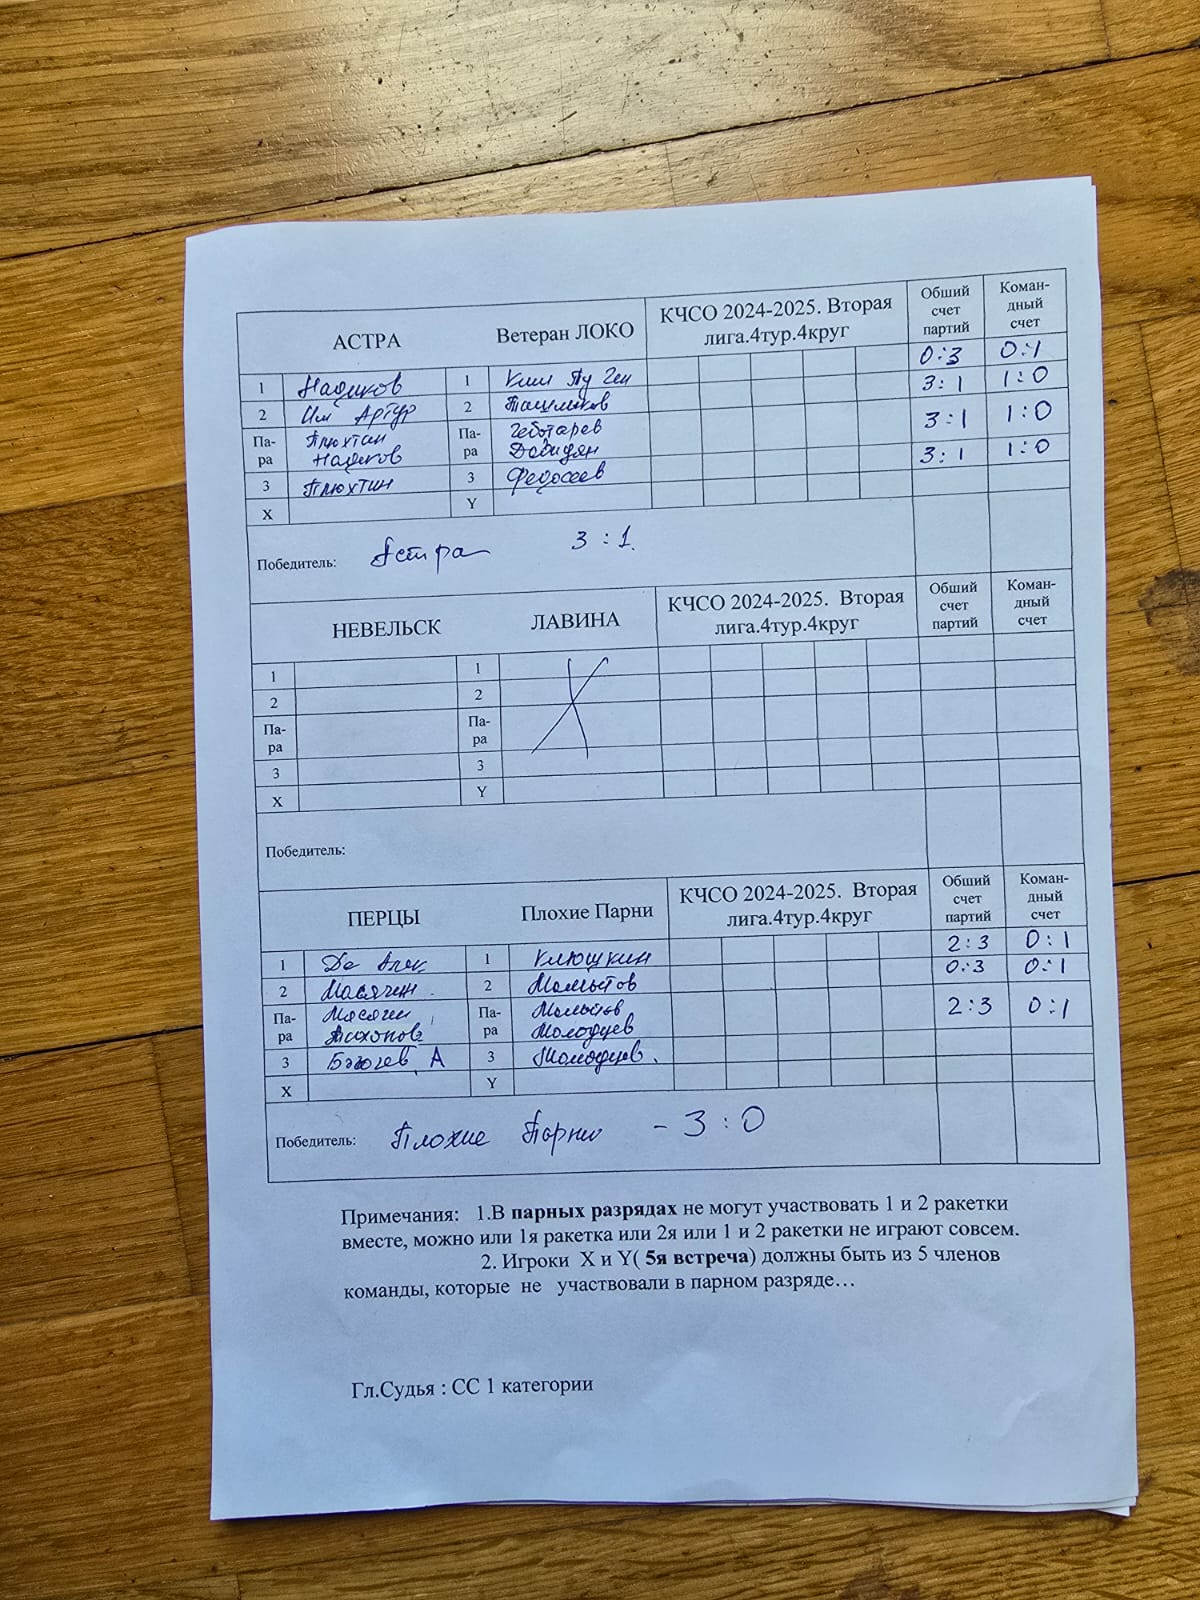 АСТРА Ветеран ЛОКО КЧСО 2024-2025. Вторая лига.4тур.4круг Обший счет партий Коман-дный счет
1 Надиков 1 Ким Ту Ген 0:3 0:1
2 Им Артур 2 Ташлыков 3:1 1:0
Па-ра Плюхтин Чеботарев 3:1 1:0
Надиков Па-ра Давидян
3 Плюхтин 3 Федосеев 3:1 1:0
X Y
Победитель: Астра 3:1.
НЕВЕЛЬСК ЛАВИНА КЧСО 2024-2025. Вторая лига.4тур.4круг Обший счет партий Коман-дный счет
1 1
2 2
Па-ра Па-ра
3 3
X Y
Победитель:
ПЕРЦЫ Плохие Парни КЧСО 2024-2025. Вторая лига.4тур.4круг Обший счет партий Коман-дный счет
1 Де 1 Клюшкин 2:3 0:1
2 Масягин 2 Мамытов 0:3 0:1
Па-ра Масягин Па-ра Мамытов 2:3 0:1
Тихонов Молодцев
3 А 3 Молодцев.
X Y
Победитель: Плохие Парни - 3:0
Примечания: 1.В парных разрядах не могут участвовать 1 и 2 ракетки
вместе, можно или 1я ракетка или 2я или 1 и 2 ракетки не играют совсем.
2. Игроки X и Y( 5я встреча) должны быть из 5 членов
команды, которые не участвовали в парном разряде…
Гл.Судья : СС 1 категории